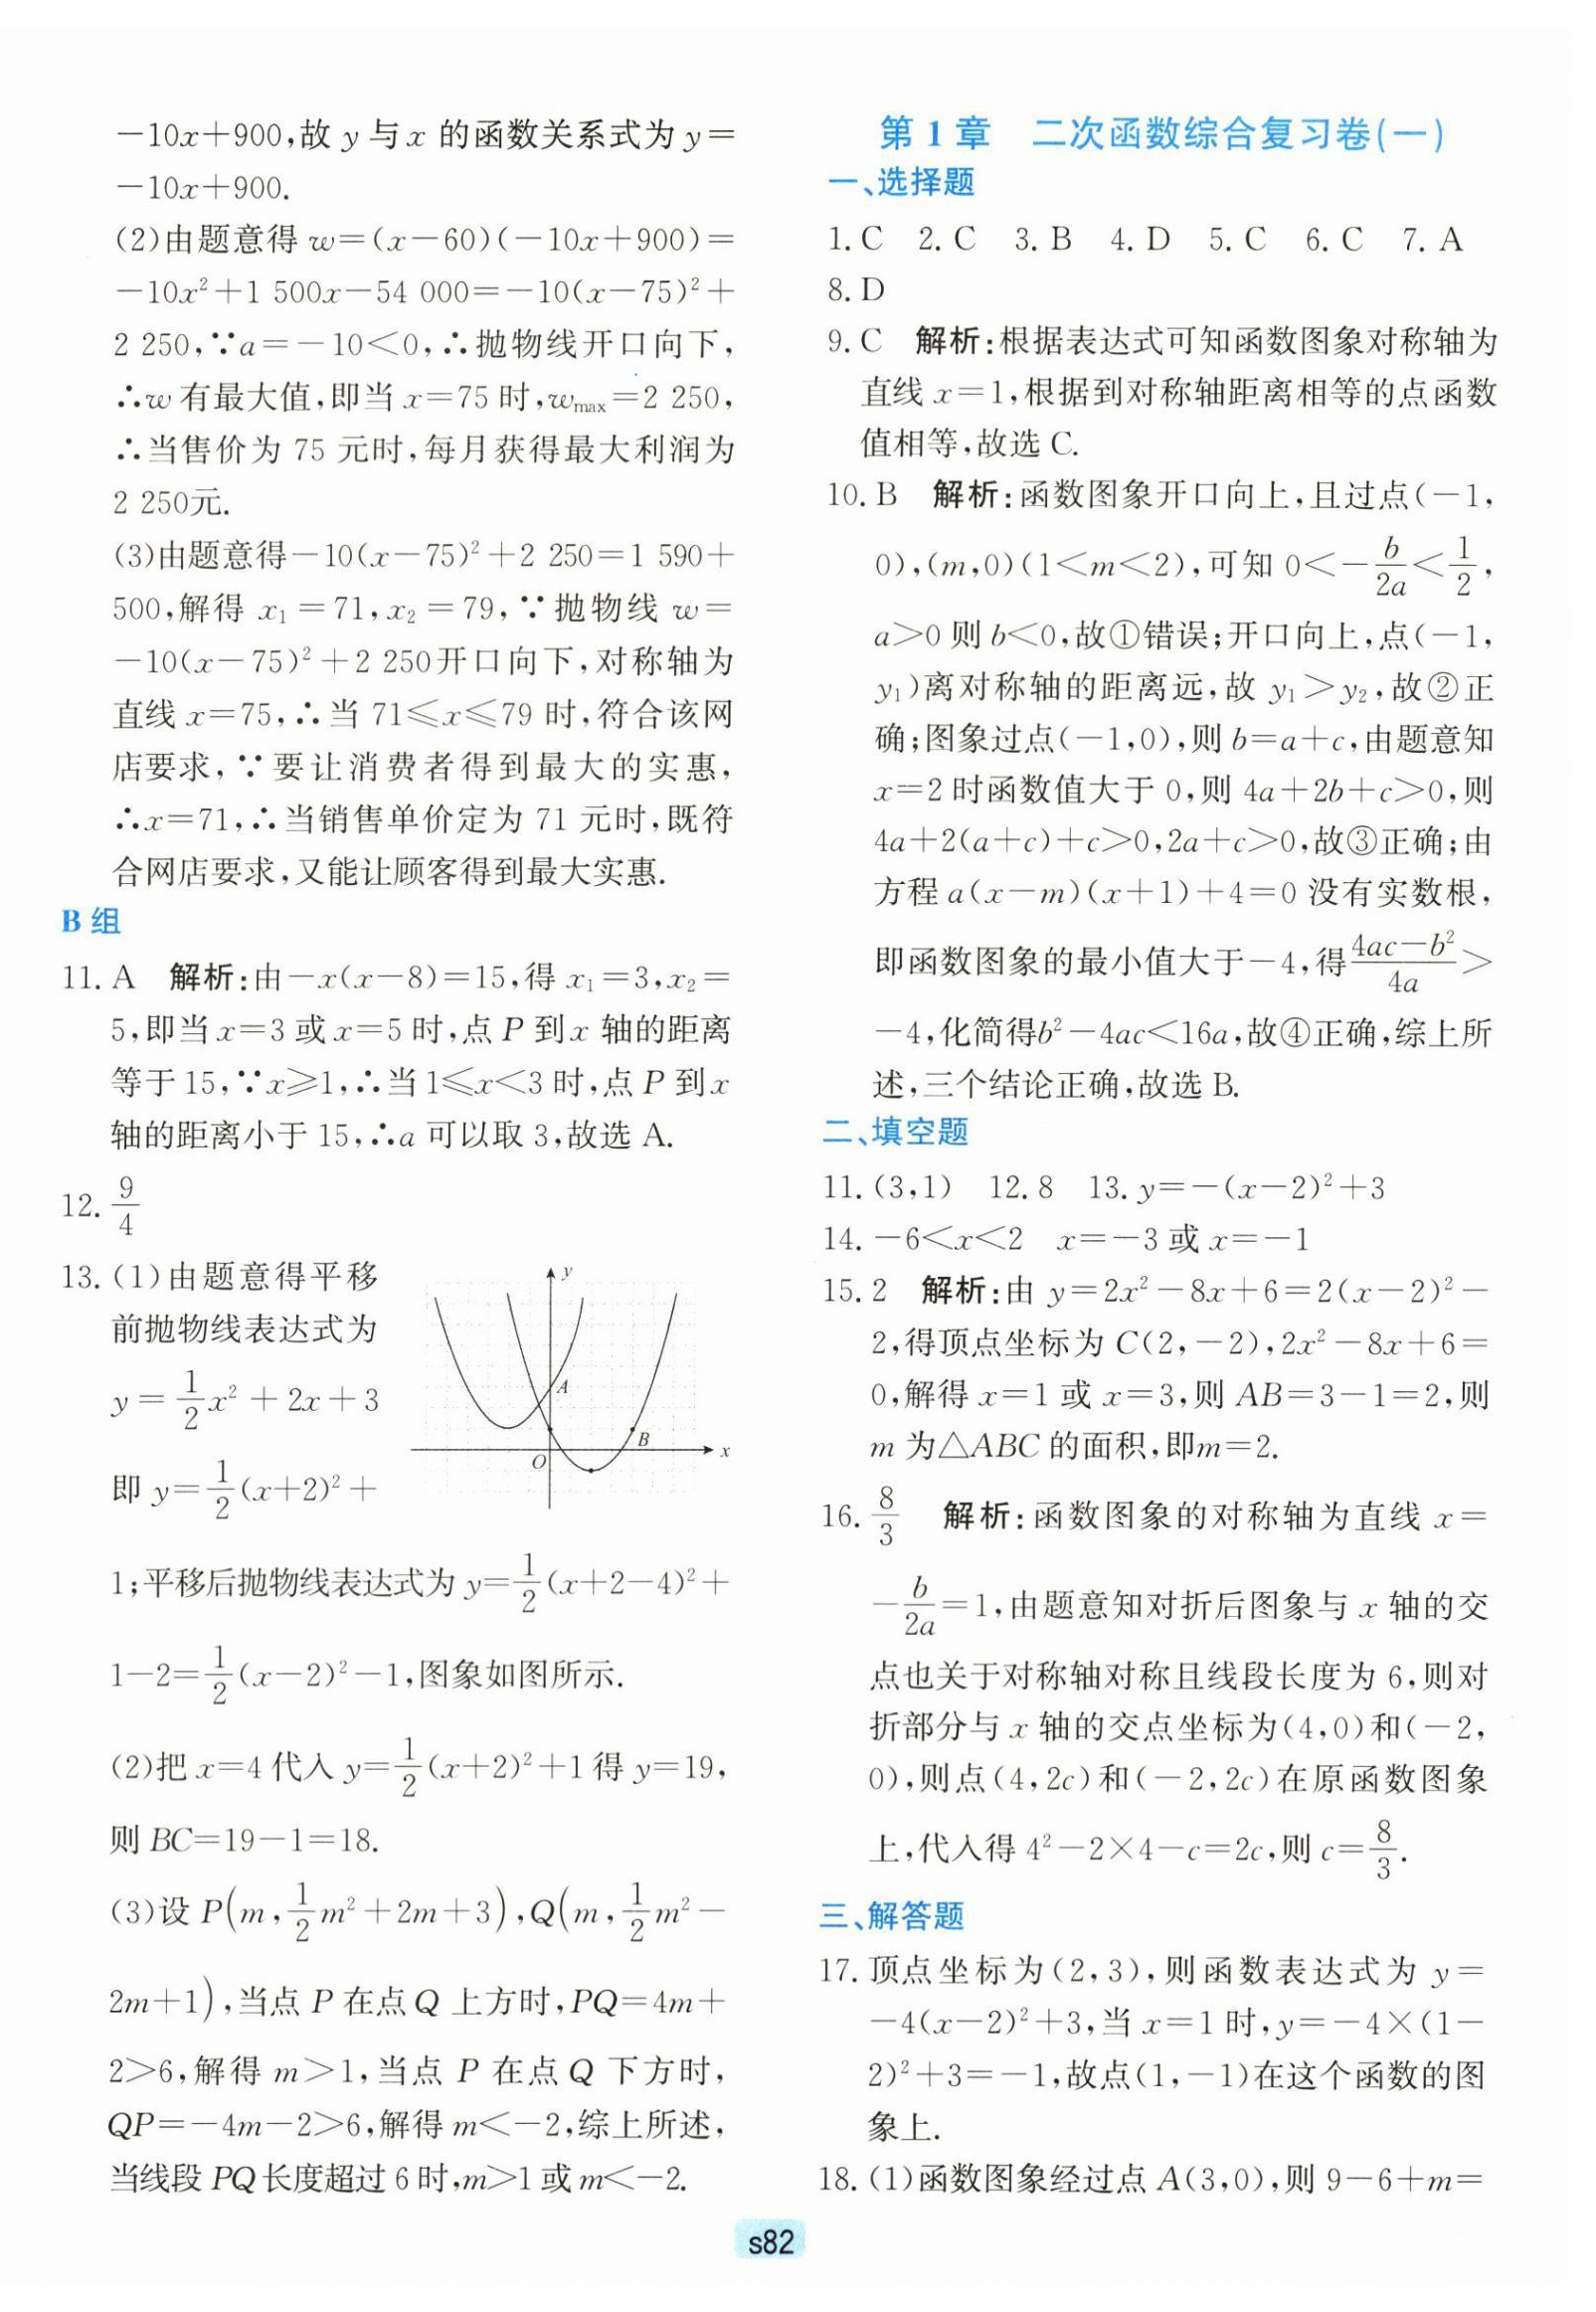 －10x＋900,故 y 与 x 的函数关系式为 y＝
－10x＋900.
(2)由题意得 w＝(x－60)(－10x＋900)＝
－10x²＋1 500x－54 000＝－10(x－75)²＋
2 250,∵a＝－10＜0,∴抛物线开口向下,
∴w 有最大值,即当 x＝75 时,wmax＝2 250,
∴当售价为 75 元时,每月获得最大利润为
2 250元.
(3)由题意得－10(x－75)²＋2 250＝1 590＋
500,解得 x₁＝71,x₂＝79,∵抛物线 w＝
－10(x－75)²＋2 250开口向下,对称轴为
直线 x＝75,∴当 71≤x≤79 时,符合该网
店要求,∵要让消费者得到最大的实惠,
∴x＝71,∴当销售单价定为 71 元时,既符
合网店要求,又能让顾客得到最大实惠.
B 组
11. A 解析:由－x(x－8)＝15,得 x₁＝3,x₂＝
5,即当 x＝3 或 x＝5 时,点 P 到 x 轴的距离
等于 15,∵x≥1,∴当 1≤x＜3 时,点 P 到 x
轴的距离小于 15,∴a 可以取 3,故选 A.
12. 9/4
13. (1)由题意得平移
前抛物线表达式为
y＝1/2x²＋2x＋3
即 y＝1/2(x＋2)²＋
y
A
B
O
x
1;平移后抛物线表达式为 y＝1/2(x＋2－4)²＋
1－2＝1/2(x－2)²－1,图象如图所示.
(2)把 x＝4 代入 y＝1/2(x＋2)²＋1 得 y＝19,
则 BC＝19－1＝18.
(3)设 P(m,1/2m²＋2m＋3),Q(m,1/2m²－
2m＋1),当点 P 在点 Q 上方时,PQ＝4m＋
2＞6,解得 m＞1,当点 P 在点 Q 下方时,
QP＝－4m－2＞6,解得 m＜－2,综上所述,
当线段 PQ 长度超过 6 时,m＞1 或 m＜－2.
第 1 章 二次函数综合复习卷(一)
一、选择题
1. C 2. C 3. B 4. D 5. C 6. C 7. A
8. D
9. C 解析:根据表达式可知函数图象对称轴为
直线 x＝1,根据到对称轴距离相等的点函数
值相等,故选 C.
10. B 解析:函数图象开口向上,且过点(－1,
0),(m,0)(1＜m＜2),可知 0＜－b/2a＜1/2,
a＞0 则 b＜0,故①错误;开口向上,点(－1,
y₁)离对称轴的距离远,故 y₁＞y₂,故②正
确;图象过点(－1,0),则 b＝a＋c,由题意知
x＝2 时函数值大于 0,则 4a＋2b＋c＞0,则
4a＋2(a＋c)＋c＞0,2a＋c＞0,故③正确;由
方程 a(x－m)(x＋1)＋4＝0 没有实数根,
即函数图象的最小值大于－4,得(4ac－b²)/4a＞
－4,化简得b²－4ac＜16a,故④正确,综上所
述,三个结论正确,故选 B.
二、填空题
11. (3,1) 12. 8 13. y＝－(x－2)²＋3
14. －6＜x＜2 x＝－3 或 x＝－1
15. 2 解析:由 y＝2x²－8x＋6＝2(x－2)²－
2,得顶点坐标为 C(2,－2),2x²－8x＋6＝
0,解得 x＝1 或 x＝3,则 AB＝3－1＝2,则
m 为△ABC 的面积,即m＝2.
16. 8/3 解析:函数图象的对称轴为直线 x＝
－b/2a＝1,由题意知对折后图象与 x 轴的交
点也关于对称轴对称且线段长度为 6,则对
折部分与 x 轴的交点坐标为(4,0)和(－2,
0),则点(4,2c)和(－2,2c)在原函数图象
上,代入得 4²－2×4－c＝2c,则 c＝8/3.
三、解答题
17. 顶点坐标为(2,3),则函数表达式为 y＝
－4(x－2)²＋3,当 x＝1 时,y＝－4×(1－
2)²＋3＝－1,故点(1,－1)在这个函数的图
象上.
18. (1)函数图象经过点 A(3,0),则 9－6＋m＝
s82